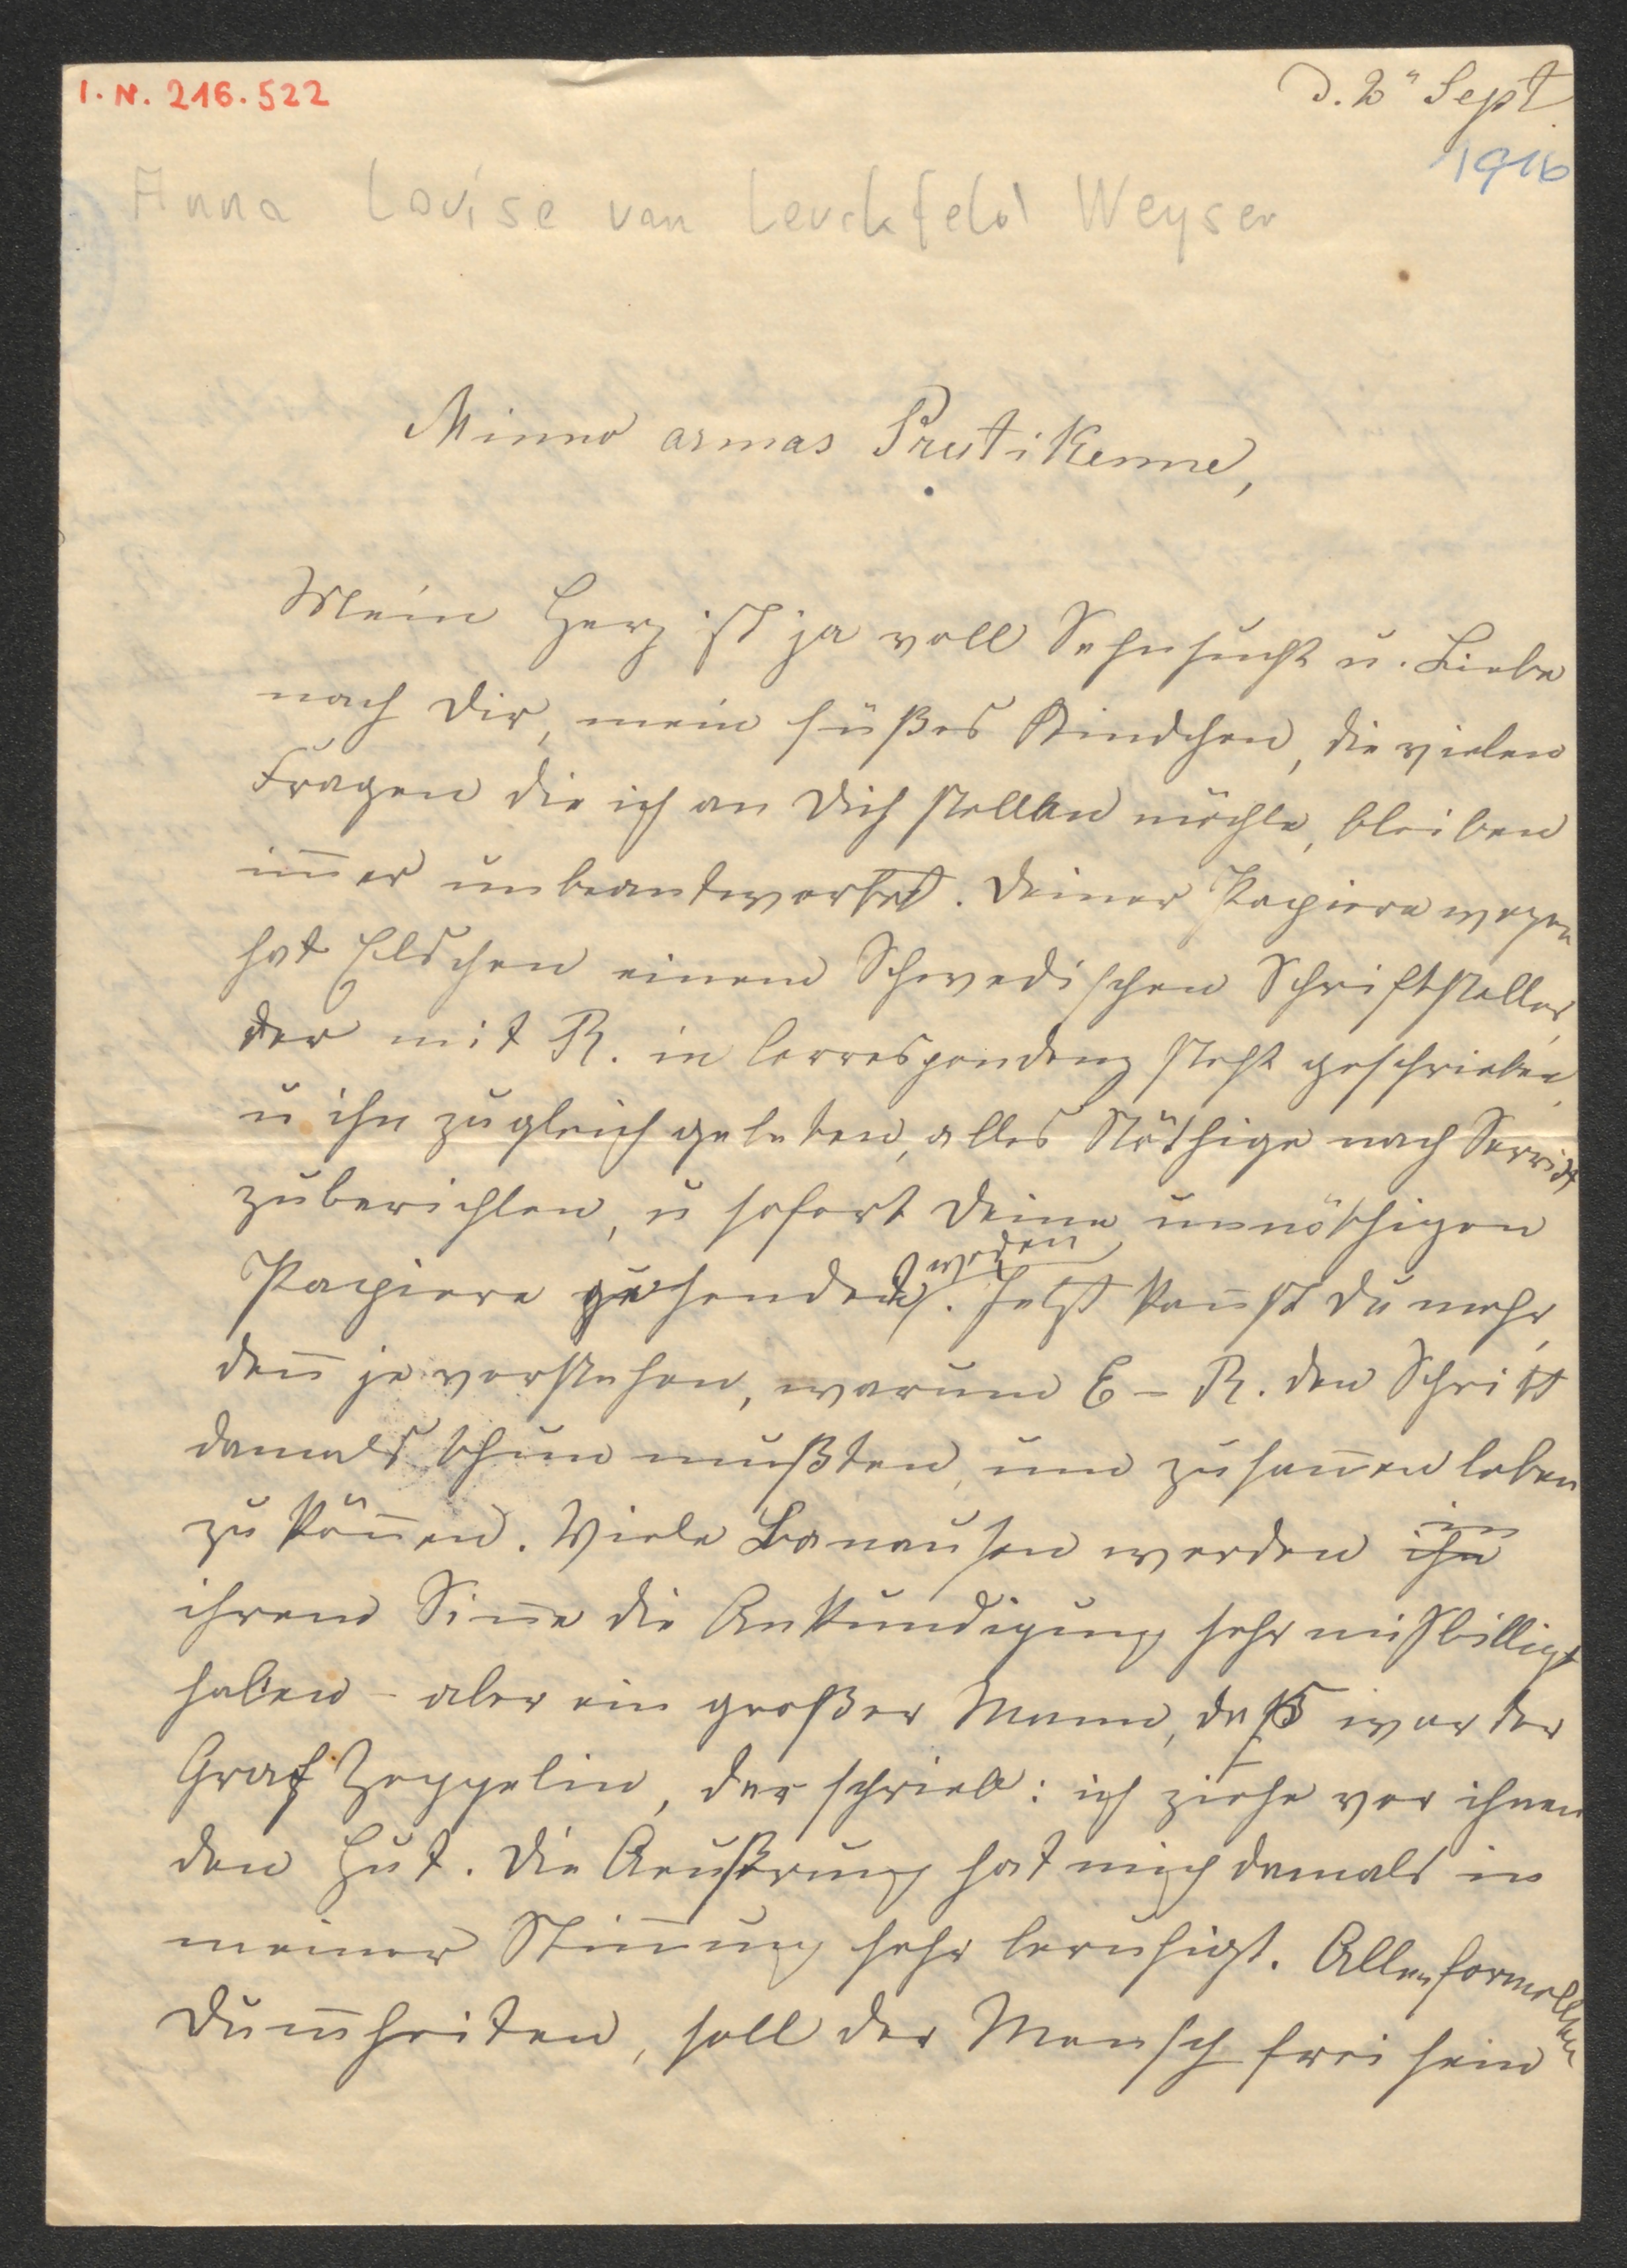 I. N. 216.522
D. 2ⁿ Sept.
1916
Anna Louise van Leuckfeld Weyser
Minno armas Prutikenne,
Mein Herz ist ja voll Sehnsucht u. Liebe
nach Dir, mein süßes Kindchen, die vielen
Fragen die ich an Dich stellen möchte, bleiben
im̄er unbeantwortet. Deiner Papiere wegen
hat Elschen einem Schwedischen Schriftsteller,
der mit R. in Correspondenz steht geschrieben,
u ihn zugleich gebeten, alles Nöthige nach
zuberichten, u sofort Deine unnöthigen
werden
Papiere gesendet. Jetzt kan̄st Du mehr,
den̄ je verstehen, warum E – R. den Schritt
damals thun mußten, um zusam̄en leben
zu kön̄en. Viele Banausen werden ihn
in
ihrem Sin̄e die Ankündigung sehr mißbilligt
haben – aber ein großer Mann, daß war der
Graf Zeppelin, der schrieb: ich ziehe vor ihnen
den Hut. Die Aeußrung hat mich damals in
meiner Stim̄ung sehr beruhigt. Allen formellen
Dum̄heiten, soll der Mensch frei sein